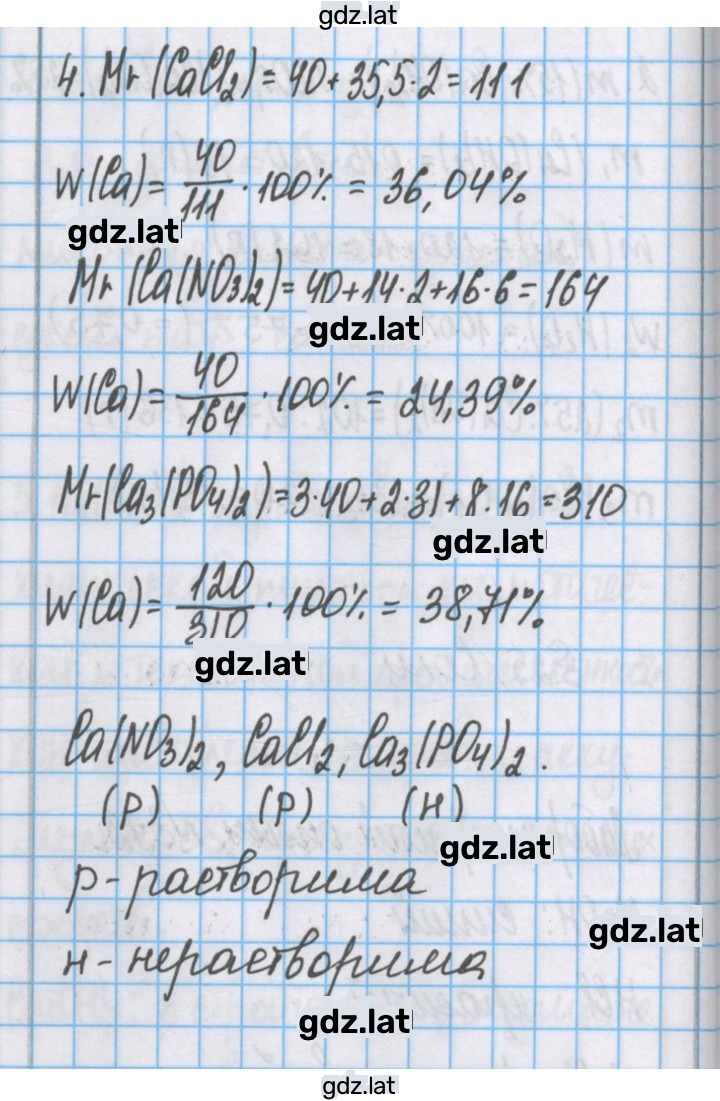 gdz.lat
4. Mr(CaCl₂) = 40 + 35,5·2 = 111
W(Ca) = 40/111 · 100% = 36,04%
gdz.lat
Mr(Ca(NO₃)₂) = 40+14·2+16·6 = 164
gdz.lat
W(Ca) = 40/164 · 100% = 24,39%
Mr(Ca₃(PO₄)₂) = 3·40+2·31+8·16 = 310
gdz.lat
W(Ca) = 120/310 · 100% = 38,71%
gdz.lat
Ca(NO₃)₂, CaCl₂, Ca₃(PO₄)₂.
(р) (р) (н)
gdz.lat
р - растворима
gdz.lat
н - нерастворима
gdz.lat
gdz.lat